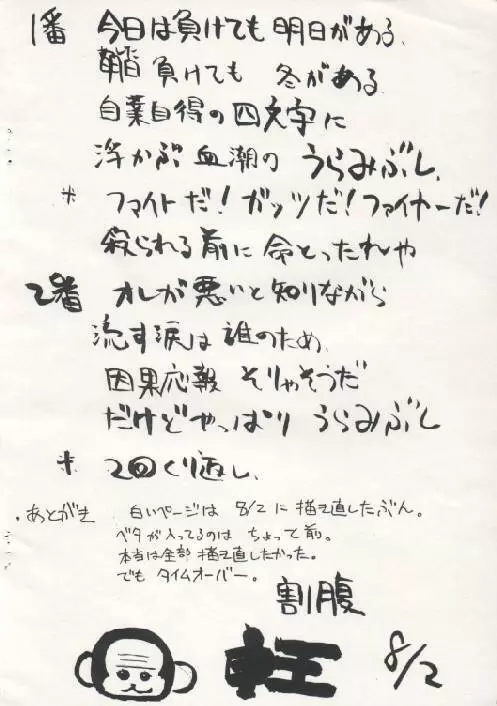 1番 今日は負けても 明日がある、
負けても 冬がある
自業自得の四文字に
浮かぶ血潮の うらみぶし、
* ファイトだ!ガッツだ!ファイヤーだ!
殺られる前に 命とったれや
2番 オレが悪いと知りながら
流す涙は誰のため、
因果応報 そりゃそうだ
だけどやっぱり うらみぶし
* 2回くり返し、
・あとがき 白いページは 8/2に描き直したぶん。
ベタが入ってるのは ちょって前。
本当は全部描き直したかった。
でもタイムオーバー。
割腹
8/2